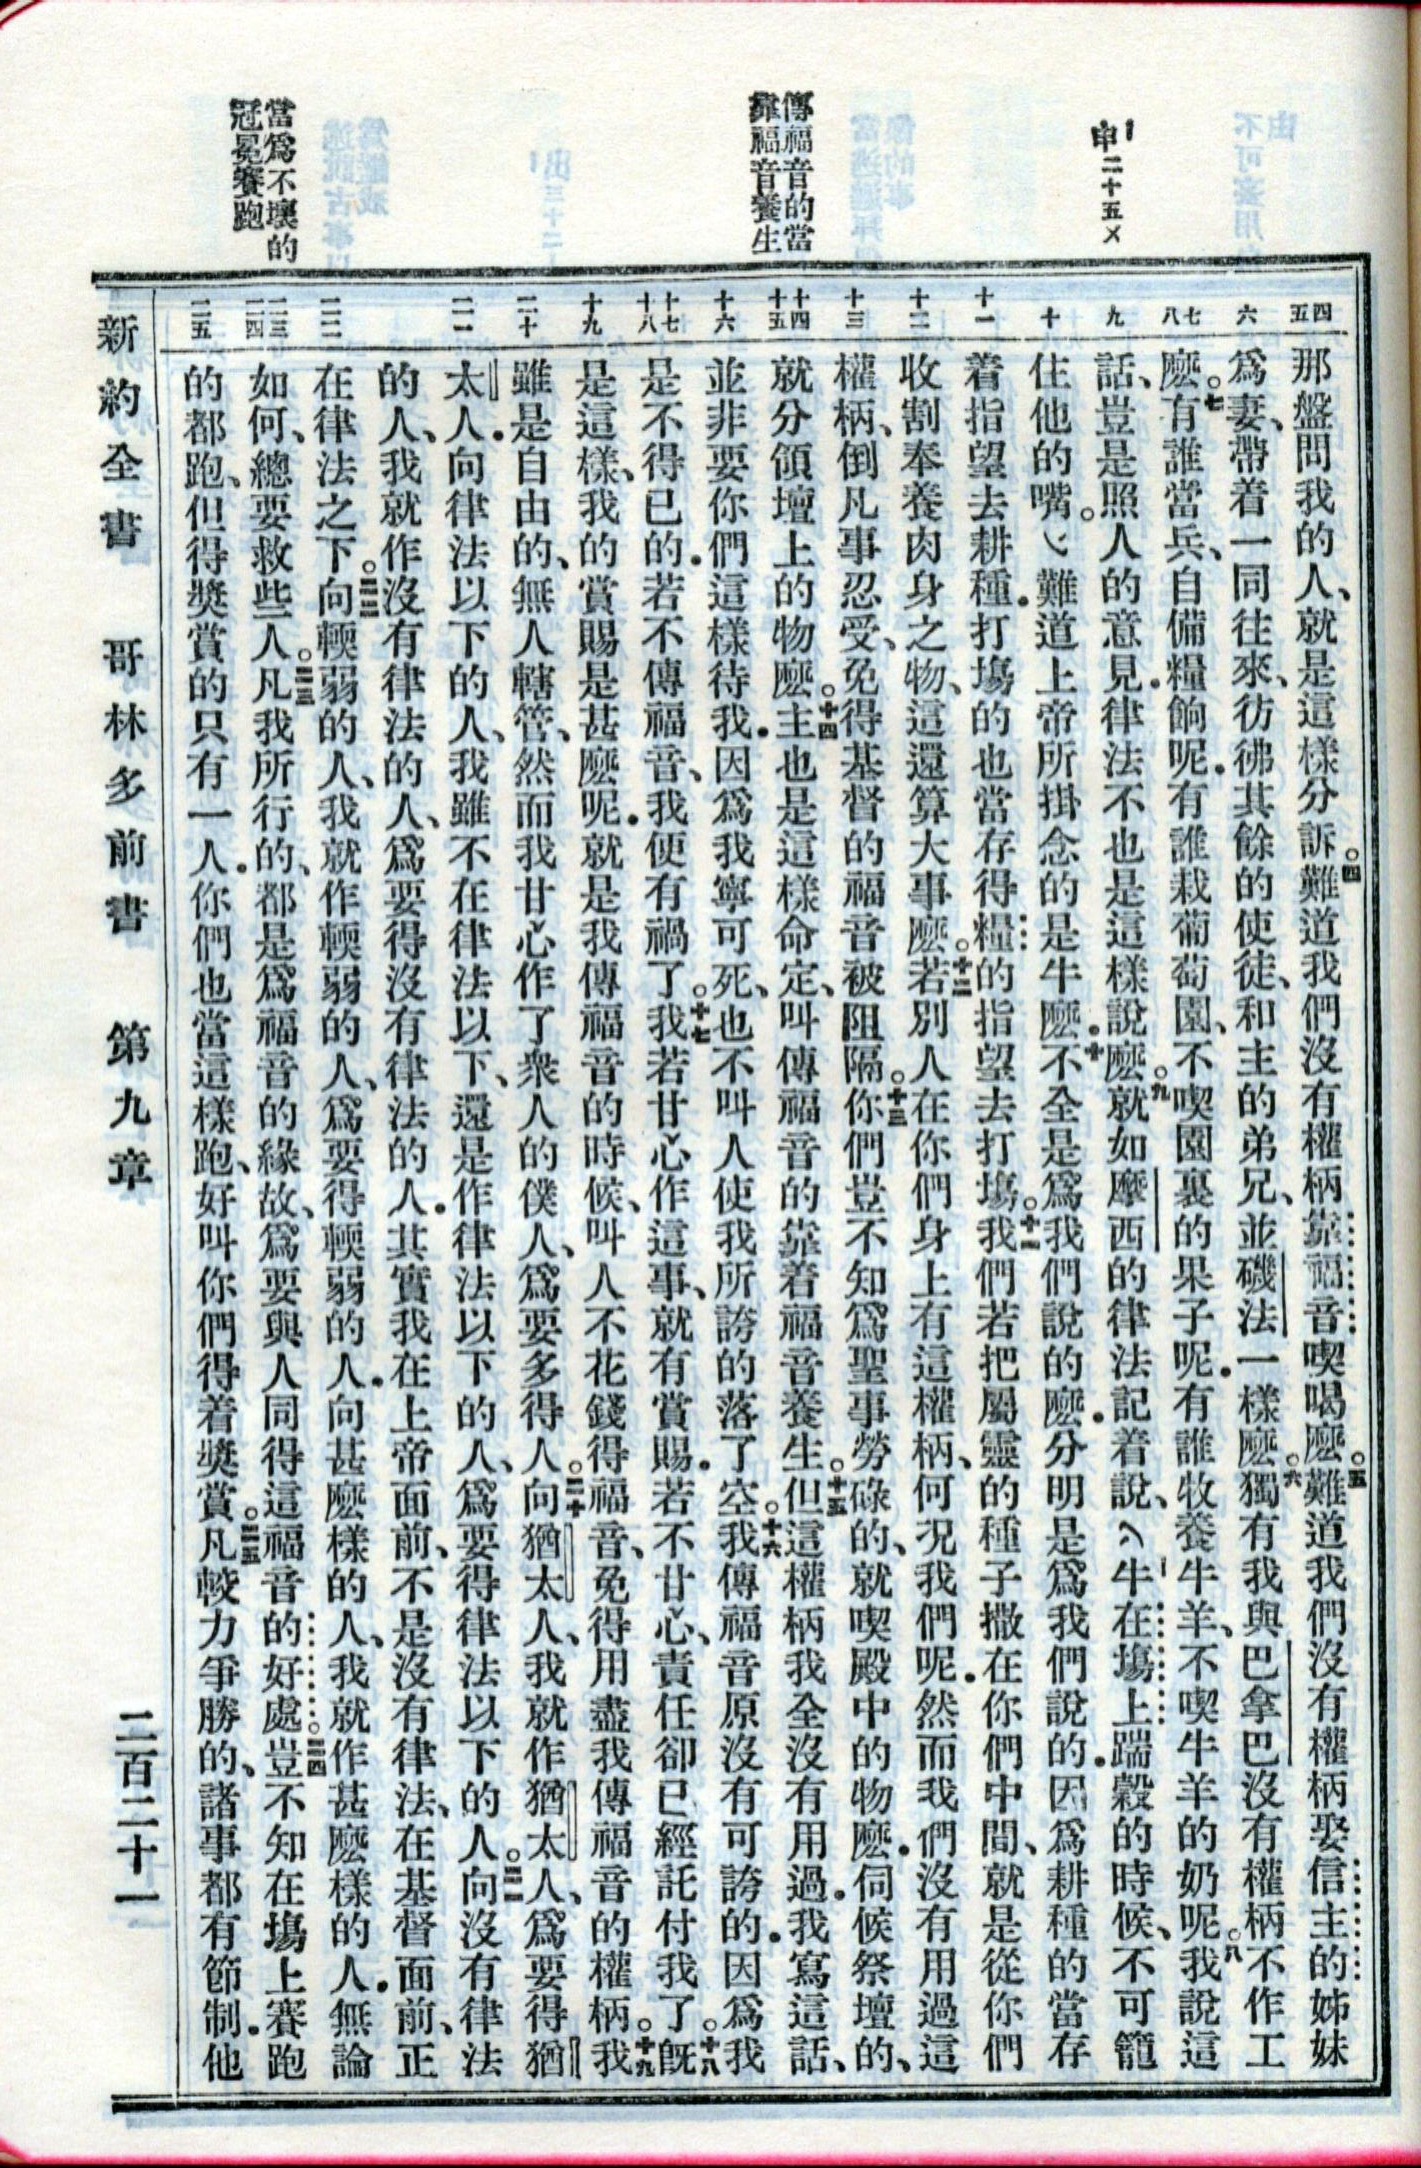 申二十五乂
傳福音的當
靠福音養生
當爲不壞的
冠冕賽跑
四
五
六
七
八
九
十
十一
十二
十三
十四
十五
十六
十七
十八
十九
二十
二一
二二
二三
二四
二五
那盤問我的人、就是這樣分訴。四難道我們沒有權柄靠福音喫喝麽。五難道我們沒有權柄娶信主的姊妹
爲妻、帶着一同往來、彷彿其餘的使徒、和主的弟兄、並磯法一樣麽。六獨有我與巴拿巴沒有權柄不作工
麽。七有誰當兵、自備糧餉呢．有誰栽葡萄園、不喫園裏的果子呢．有誰牧養牛羊、不喫牛羊的奶呢。八我說這
話、豈是照人的意見．律法不也是這樣說麽。九就如摩西的律法記着說、牛在塲上踹穀的時候、不可籠
住他的嘴。難道上帝所掛念的是牛麽．十不全是爲我們說的麽．分明是爲我們說的．因爲耕種的當存
着指望去耕種．打塲的也當存得糧的指望去打塲。十一我們若把屬靈的種子撒在你們中間、就是從你們
收割奉養肉身之物、這還算大事麽。十二若別人在你們身上有這權柄、何况我們呢．然而我們沒有用過這
權柄、倒凡事忍受、免得基督的福音被阻隔。十三你們豈不知爲聖事勞碌的、就喫殿中的物麽．伺候祭壇的、
就分領壇上的物麽。十四主也是這樣命定、叫傳福音的靠着福音養生。十五但這權柄我全沒有用過．我寫這話、
並非要你們這樣待我．因爲我寧可死、也不叫人使我所誇的落了空。十六我傳福音原沒有可誇的．因爲我
是不得已的．若不傳福音、我便有禍了。十七我若甘心作這事、就有賞賜．若不甘心、責任卻已經託付我了。十八旣
是這樣、我的賞賜是甚麽呢．就是我傳福音的時候、叫人不花錢得福音、免得用盡我傳福音的權柄。十九我
雖是自由的、無人轄管、然而我甘心作了衆人的僕人、爲要多得人。二十向猶太人、我就作猶太人、爲要得猶
太人．向律法以下的人、我雖不在律法以下、還是作律法以下的人、爲要得律法以下的人。二一向沒有律法
的人、我就作沒有律法的人、爲要得沒有律法的人．其實我在上帝面前、不是沒有律法、在基督面前、正
在律法之下。二二向輭弱的人、我就作輭弱的人、爲要得輭弱的人．向甚麽樣的人、我就作甚麽樣的人．無論
如何、總要救些人。二三凡我所行的、都是爲福音的緣故、爲要與人同得這福音的好處。二四豈不知在塲上賽跑
的都跑、但得獎賞的只有一人．你們也當這樣跑、好叫你們得着獎賞。二五凡較力爭勝的、諸事都有節制．他
新約全書　哥林多前書　第九章　二百二十一